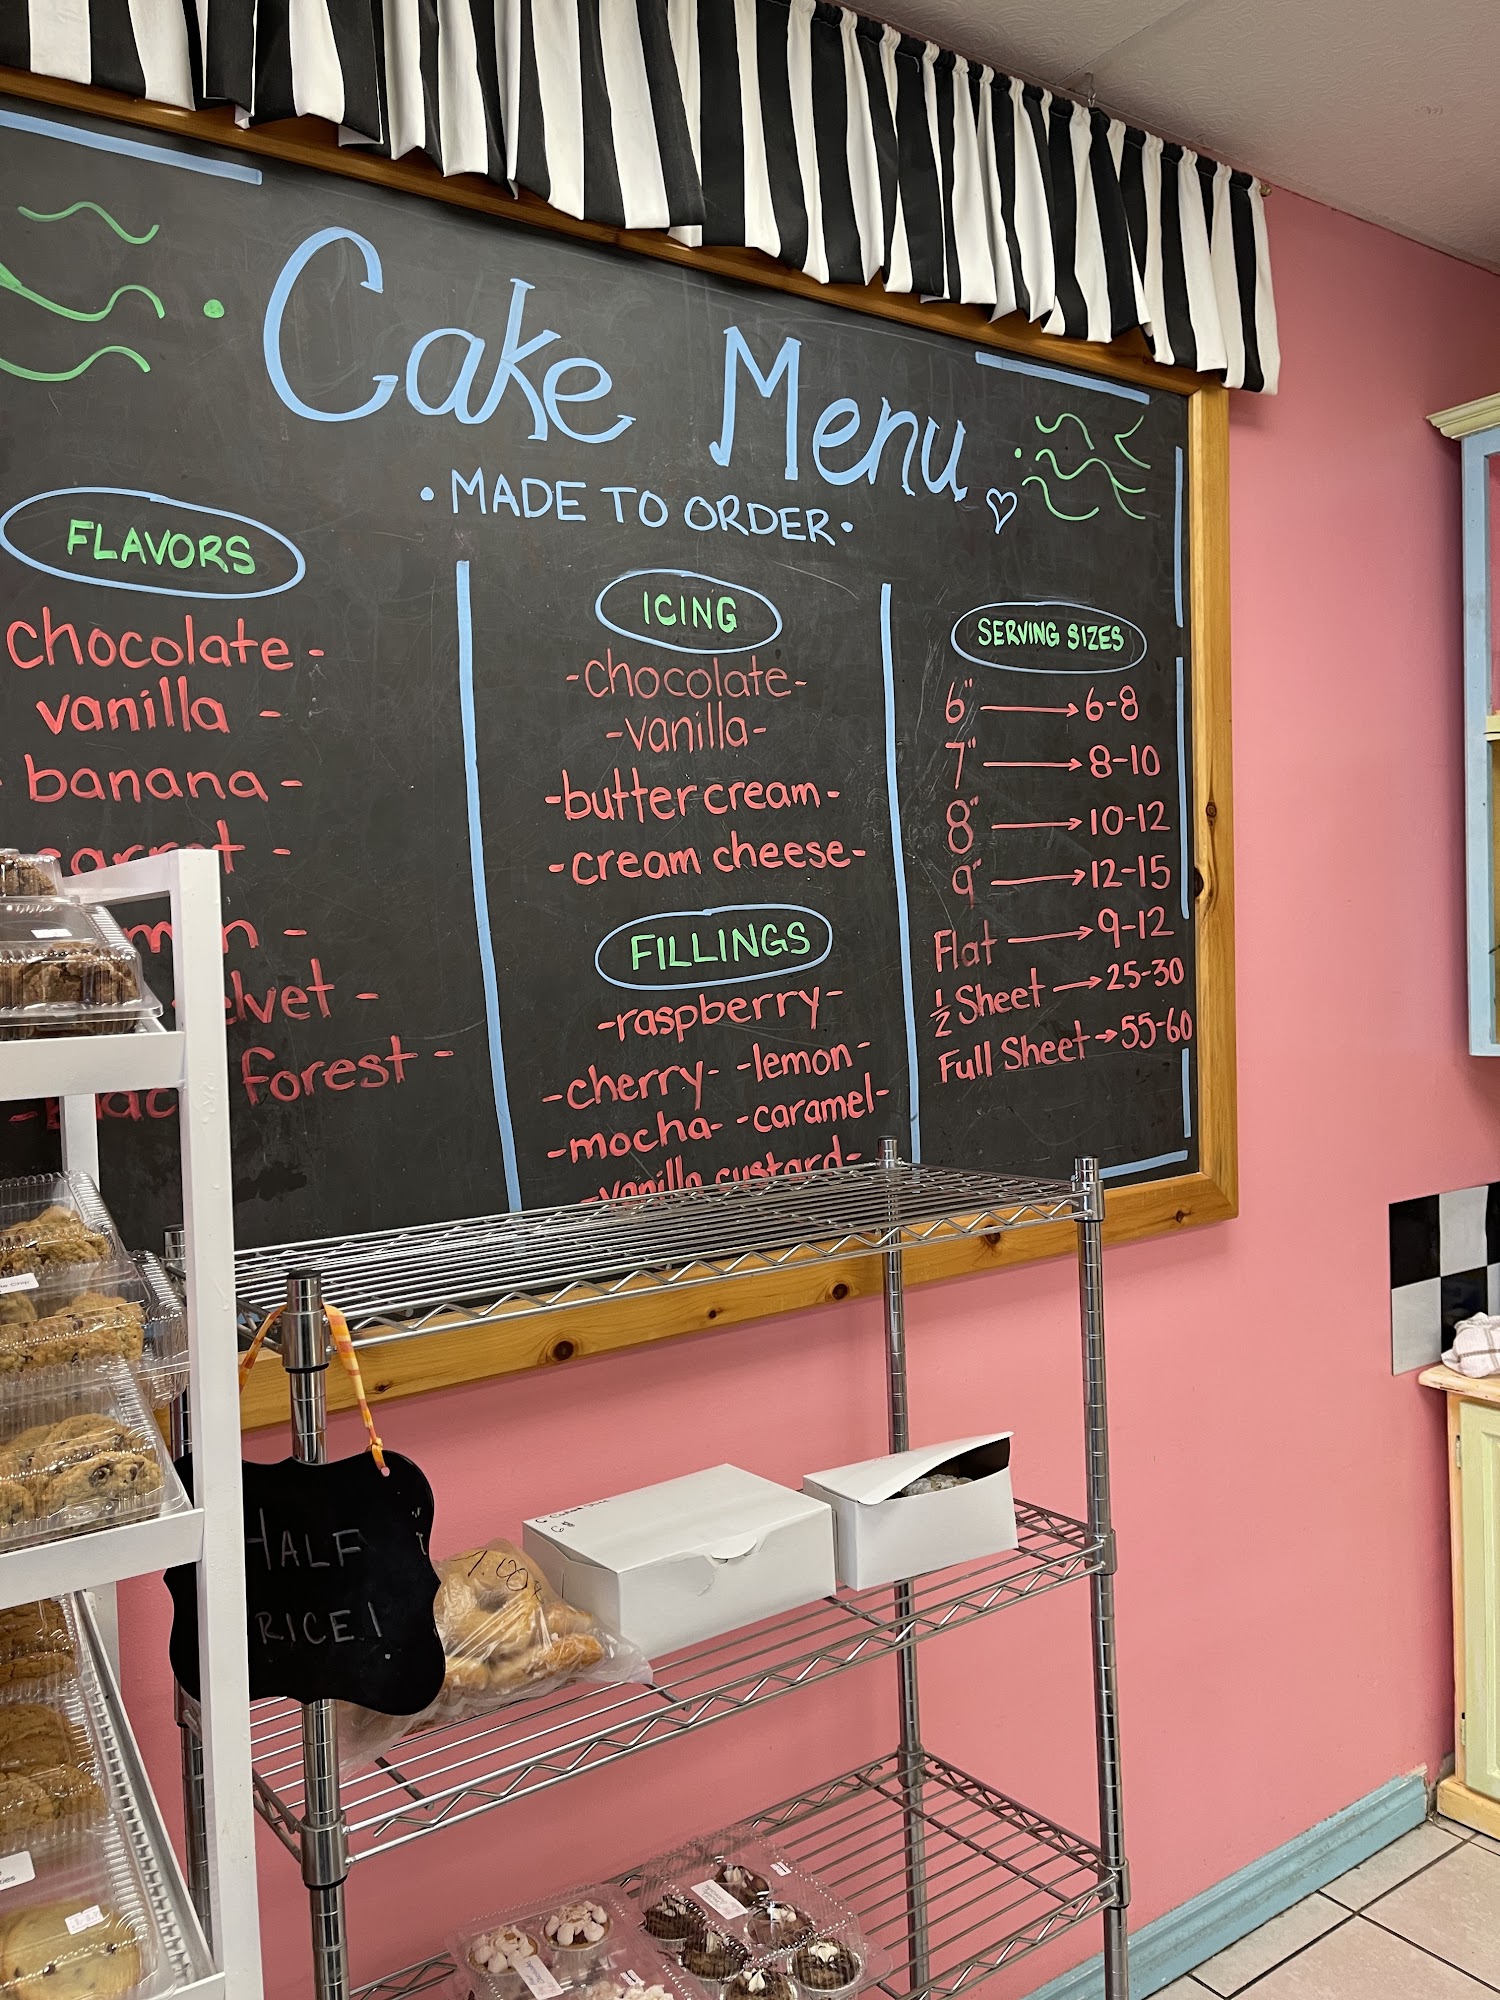 Cake Menu
• MADE TO ORDER •
FLAVORS
chocolate -
vanilla -
- banana -
carrot -
-
elvet -
forest -
ICING
-chocolate-
-vanilla-
-butter cream-
-cream cheese-
FILLINGS
-raspberry-
-cherry- -lemon-
-mocha- -caramel-
-vanilla custard-
SERVING SIZES
6" → 6-8
7" → 8-10
8" → 10-12
9" → 12-15
Flat → 9-12
½ Sheet → 25-30
Full Sheet → 55-60
HALF
RICE!